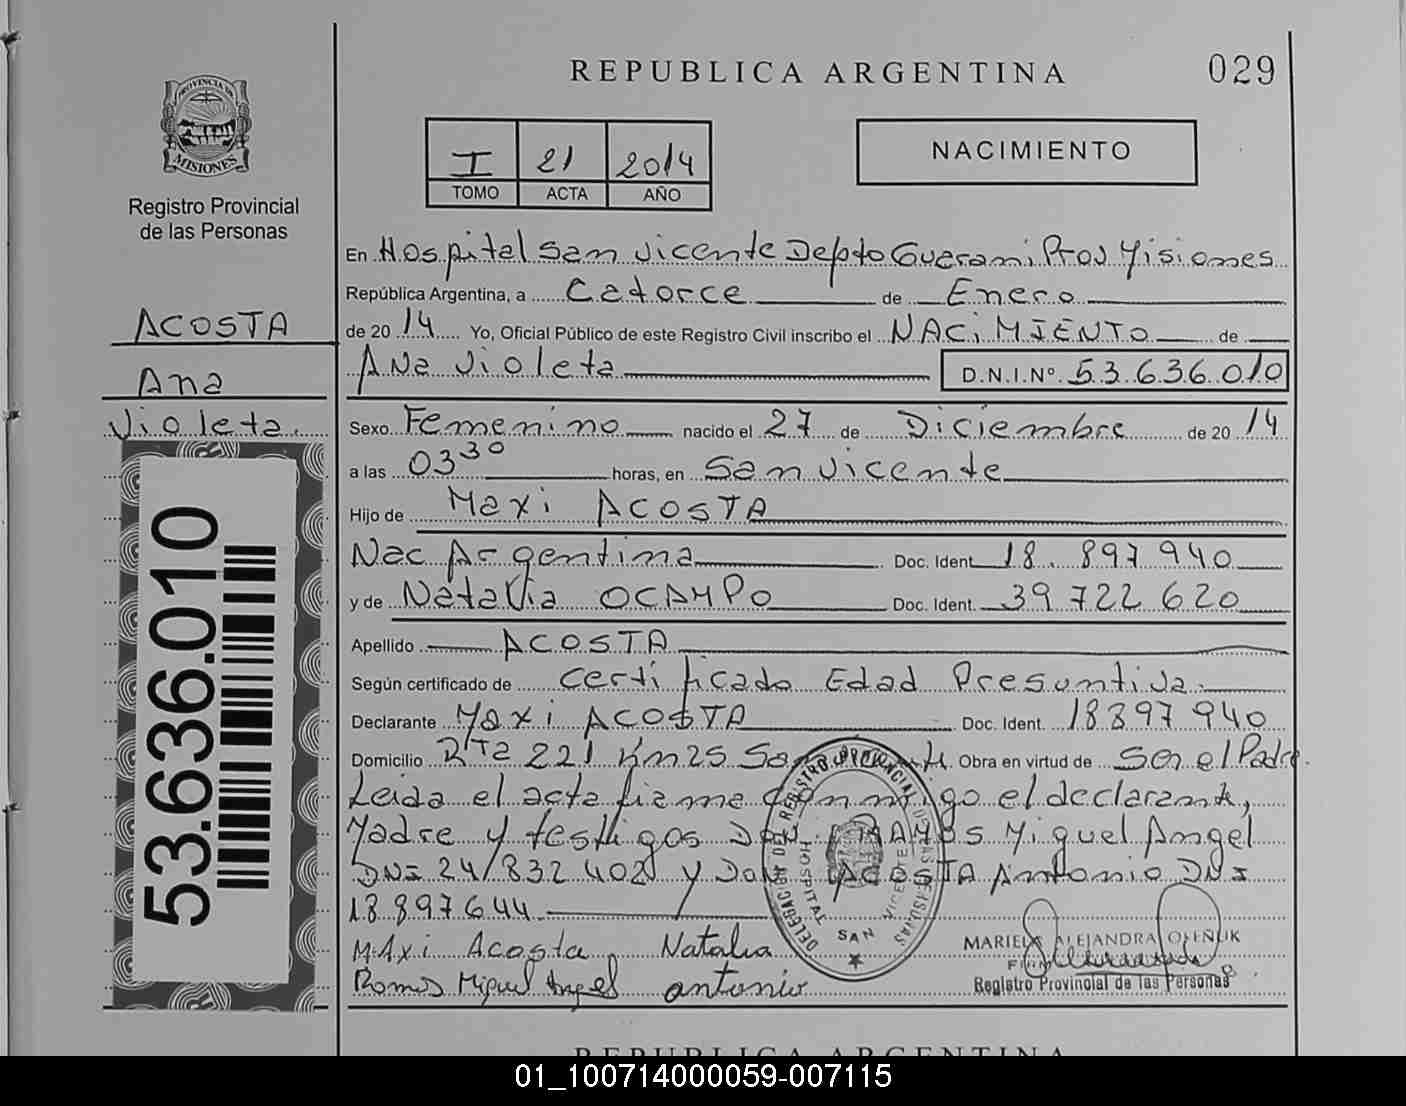 REPUBLICA ARGENTINA
029
PROVINCIA DE
MISIONES
Registro Provincial
de las Personas
I 21 2014
TOMO ACTA AÑO
NACIMIENTO
En Hospital San Vicente Depto Guarani Prov Misiones
República Argentina, a Catorce de Enero
de 2014 Yo, Oficial Público de este Registro Civil inscribo el NACIMIENTO de
Ana Violeta D.N.I.Nº 53.636.010
ACOSTA
Ana
Violeta.
Sexo Femenino nacido el 27 de Diciembre de 2014
a las 03 30 horas, en San Vicente
Hijo de Maxi ACOSTA
Nac Argentina Doc. Ident. 18.897 940
y de Natalia OCAMPO Doc. Ident. 39 722 620
Apellido ACOSTA
Según certificado de Certificado Edad Presuntiva.
Declarante Maxi ACOSTA Doc. Ident. 18897 940
Domicilio Rta 221 Km25 San Obra en virtud de Ser el Padre.
Leida el acta firma conmigo el declarante,
Madre y testigos Don RAMOS Miguel Angel
DNI 24/832 402 y Don ACOSTA Antonio DNI
18 897 644.
Maxi Acosta Natalia
Ramos Miguel Angel antonio
53.636.010
DELEGACION DEL REGISTRO PROVINCIAL DE LAS PERSONAS
HOSPITAL SAN VICENTE
MARIELA ALEJANDRA OLEÑUK
Registro Provincial de las Personas
REPUBLICA ARGENTINA
01_100714000059-007115